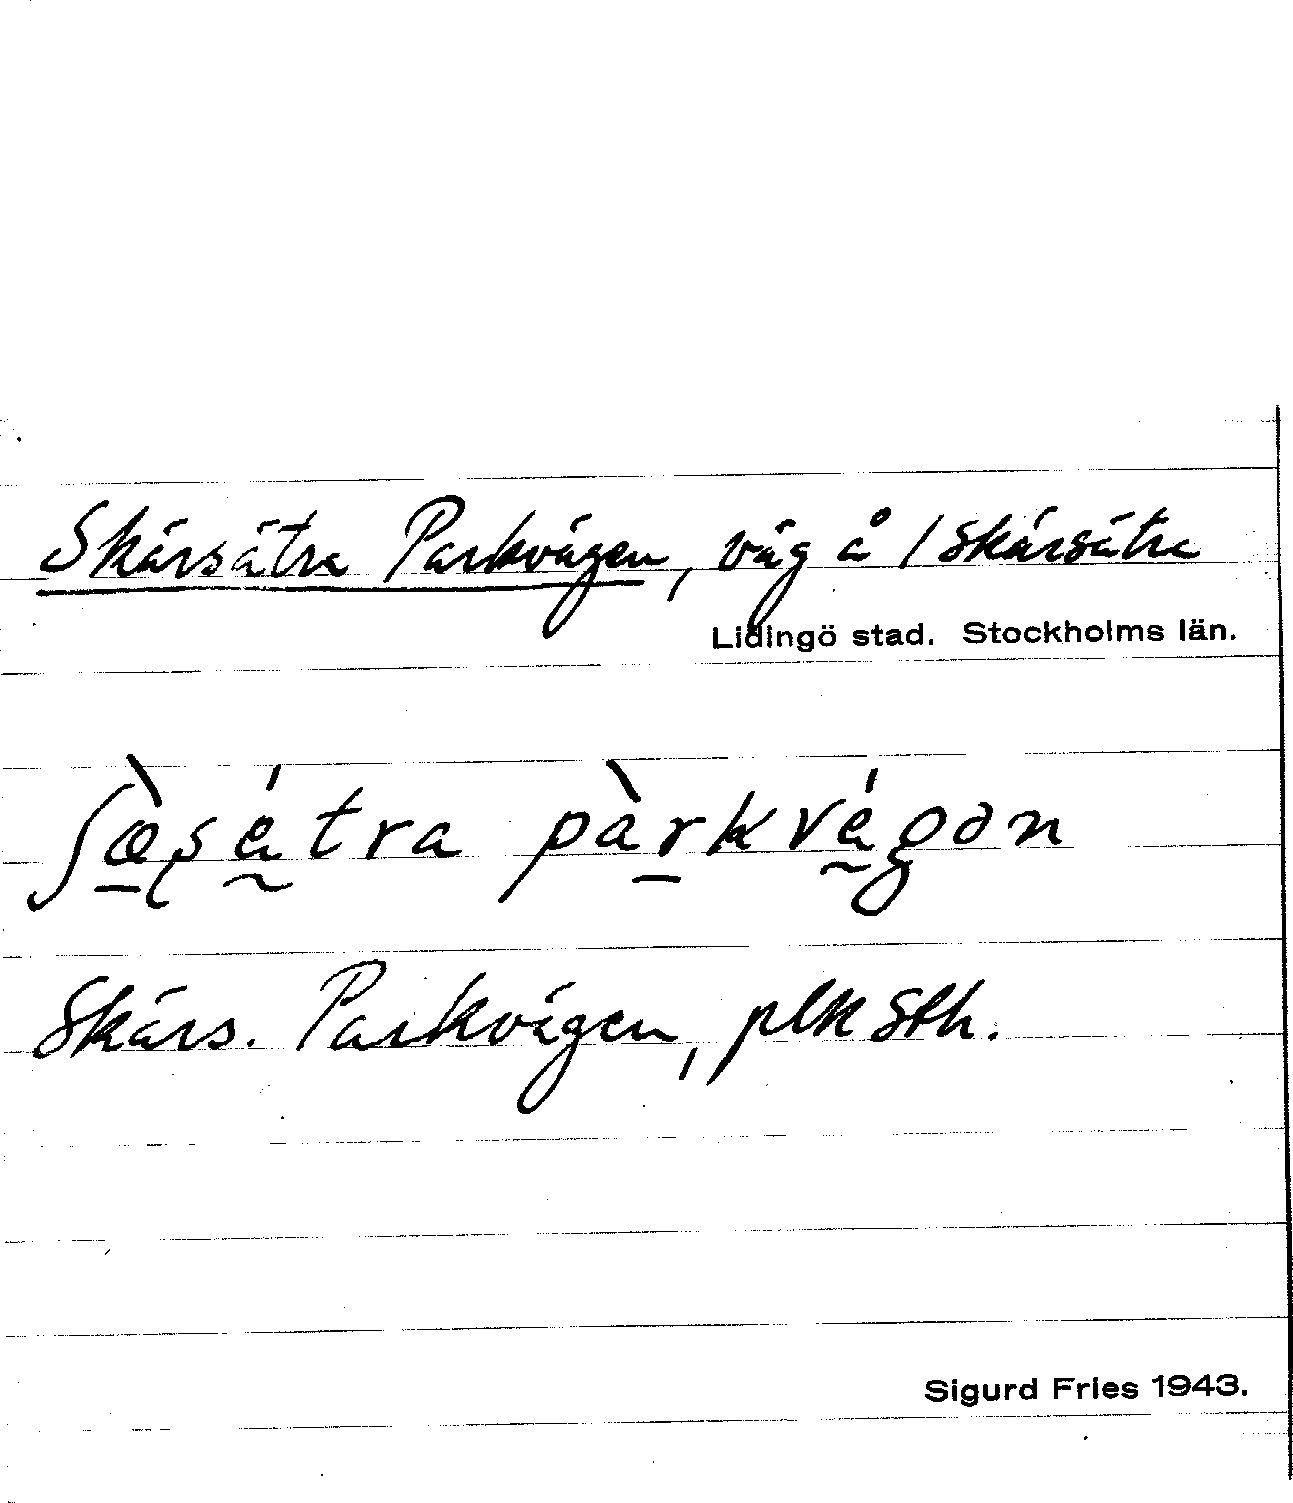 Skärsätra Parkvägen, väg å /Skärsätra
Lidingö stad. Stockholms län.
ʃæ̀ʂä́tra pàrkvä́gən
Skärs. Parkvägen, plk Sth.
Sigurd Fries 1943.